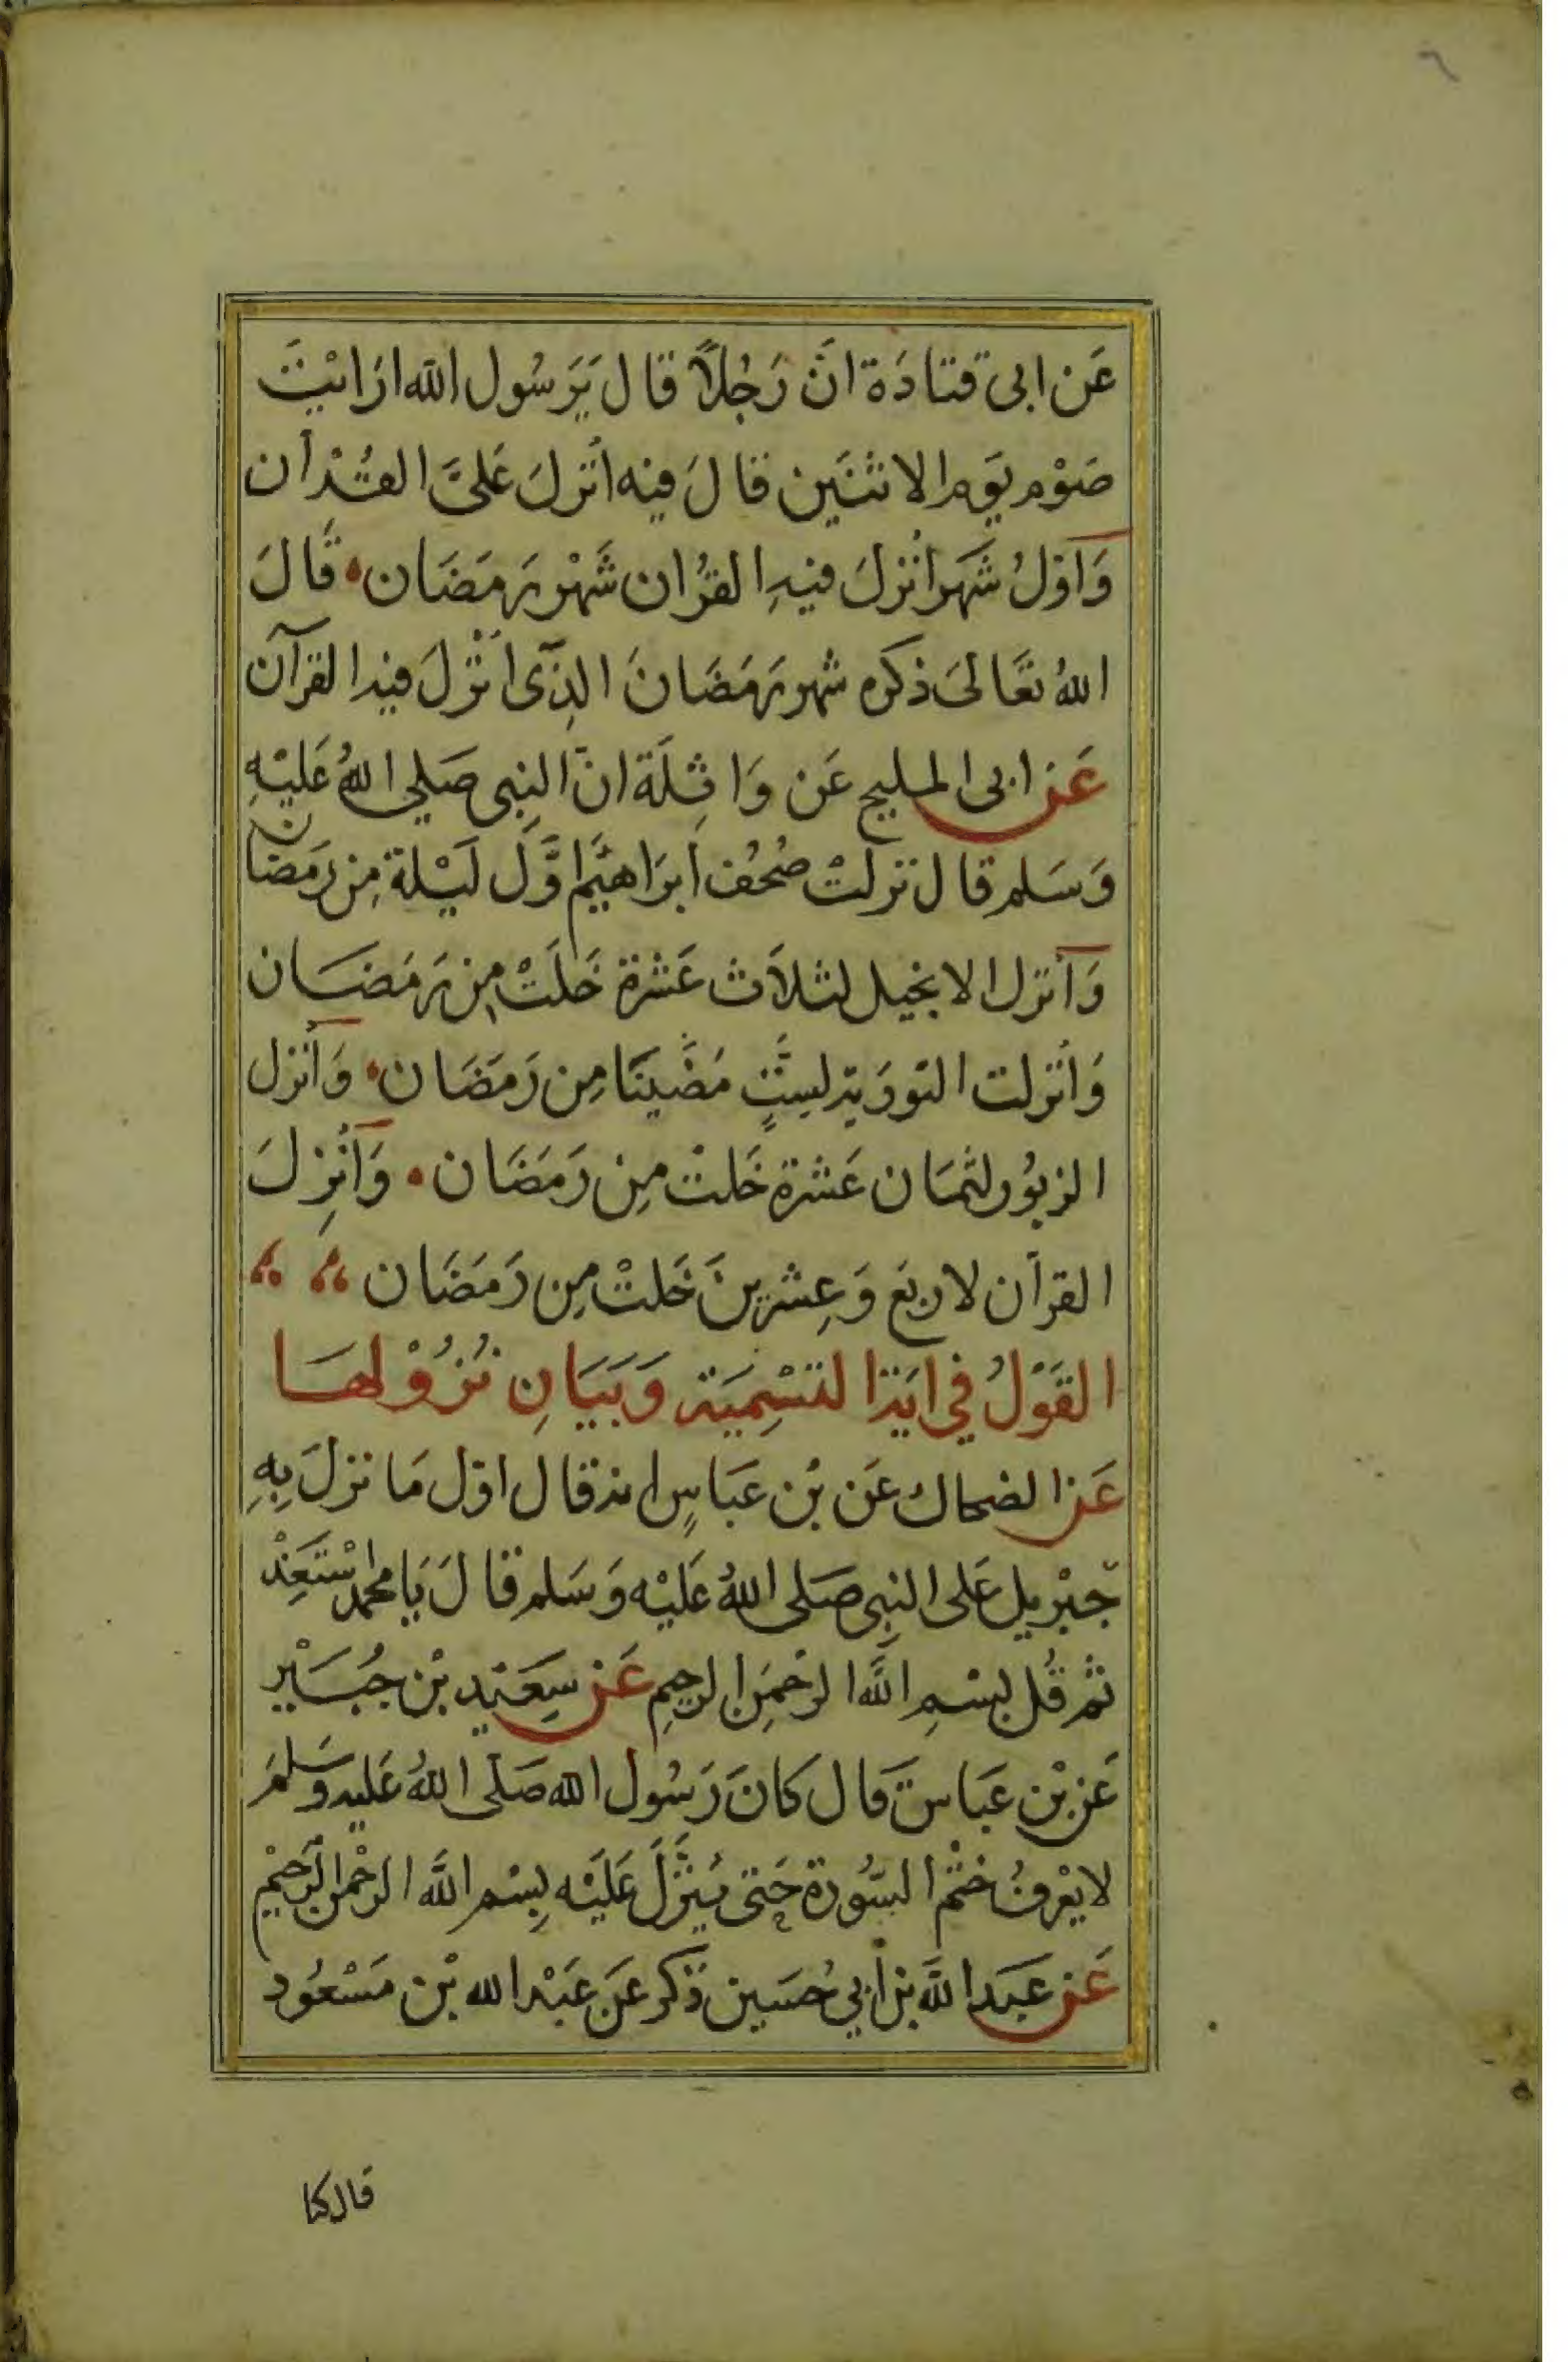 ٦
عَن ابى قتادَة انَّ رَجُلاً قال يَرَسُول الله ارَايْتَ
صَوْم يَوم الاثنَين قالَ فيه اُنْزلَ عَلىَّ القُرْآن
وَاَوّلُ شَهَر اُنْزلَ فيهِ القرُان شَهْر رَمَضَان قَالَ
اللهُ تعَالىَ ذكره شهر رَمَضَانَ الذِّى اُنْزلَ فيه القرآن
عَن ابى المليح عَن وَاثِلَة انّ النبِى صَلى اللهُ عَليْهِ
وَسَلم قال نزلتْ صُحُف ابرَاهيَم اوَّل لَيْلة مِن رَمَضان
وَاُنزل الانجيل لثلاَث عَشرة خَلَتْ مِن رَمَضَان
وَانْزلت التوورية لسِتٍّ مَضَينَا مِن رَمَضَان وَاُنْزل
الزبوُر لثمَان عَشرة خَلتْ مِن رَمَضَان وَاُنْزِلَ
القرآن لاربَع وَعِشرينَ خَلتْ مِن رَمَضَان
القَوْلُ في ايَة التسْمِيَة وَبَيَانِ نُزُوْلهَا
عَن الضحاك عَن بْن عَبَاسٍ انه قال اوّل مَا نزلَ بِهِ
جبْريل عَلى النبِى صَلى اللهُ عَليْه وَسَلم قالَ يَا محمد سْتَعِذْ
ثم قُل بسْمِ اللَّه الرحْمَن الرحِيمِ عَن سِعَيْد بْن جُبَيْر
عَن بْن عَبَاس قال كانَ رَسُول الله صَلى اللهُ عَليه وَسَلمَ
لا يعْرفُ ختْم السُّورة حَتى يُنَزَّلَ عَلَيْه بِسْم اللَّه الرحْمن الرَحيْم
عَن عَبَد اللَّه بن اَبي حُسَين ذكر عَن عَبْد الله بْن مَسْعُود
قال كنا